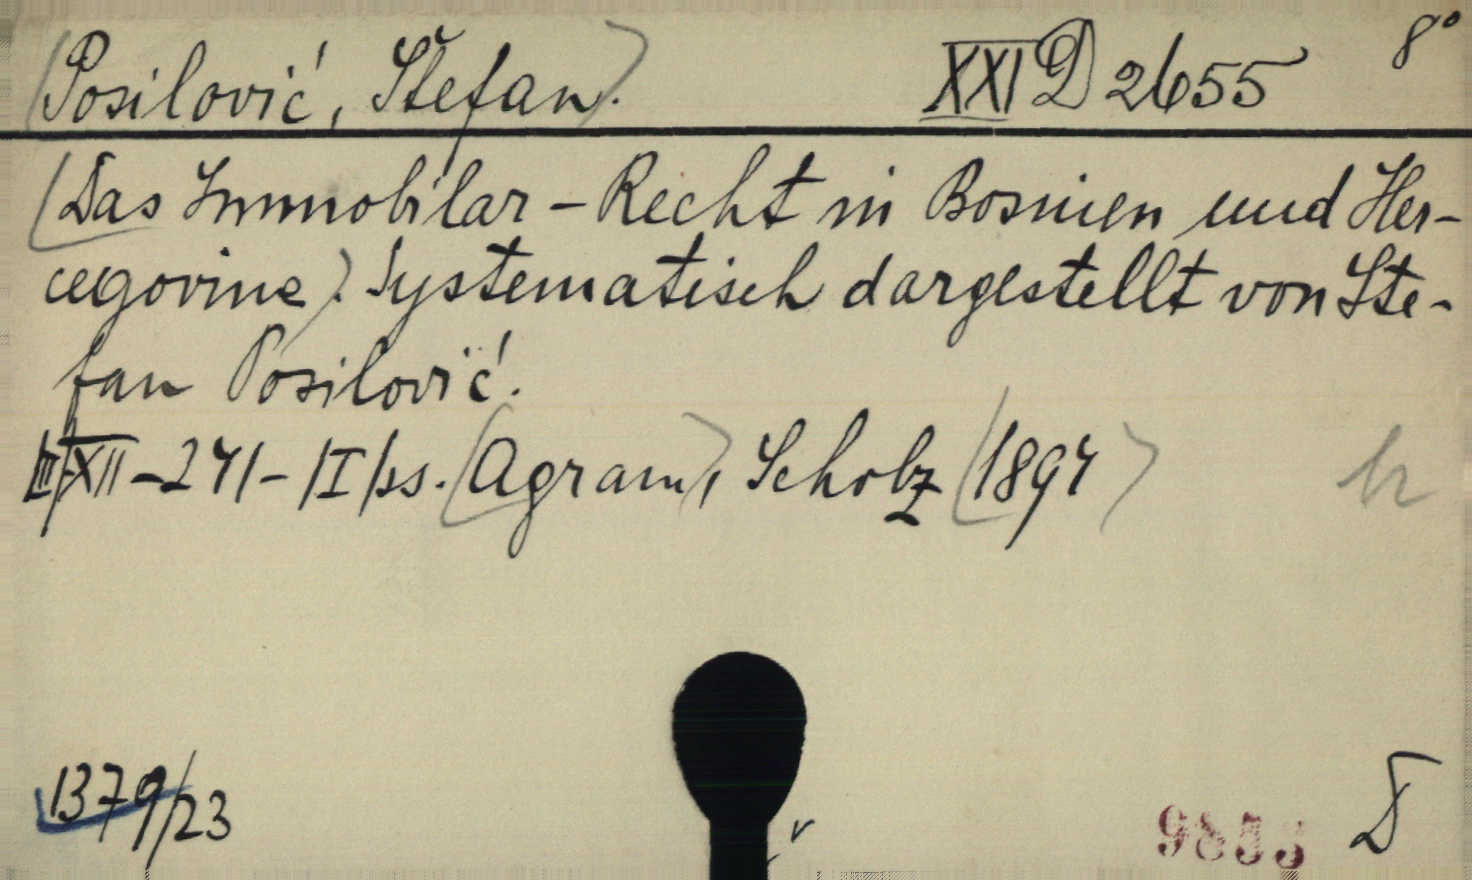 (Posilović, Štefan). XXI D 2655 8°
(Das Immobilar-Recht in Bosnien und Her-
cegovine). Systematisch dargestellt von Ste-
fan Posilović.
/III/XII-241-/I/ss. (Agram), Scholz (1894)
1379/23